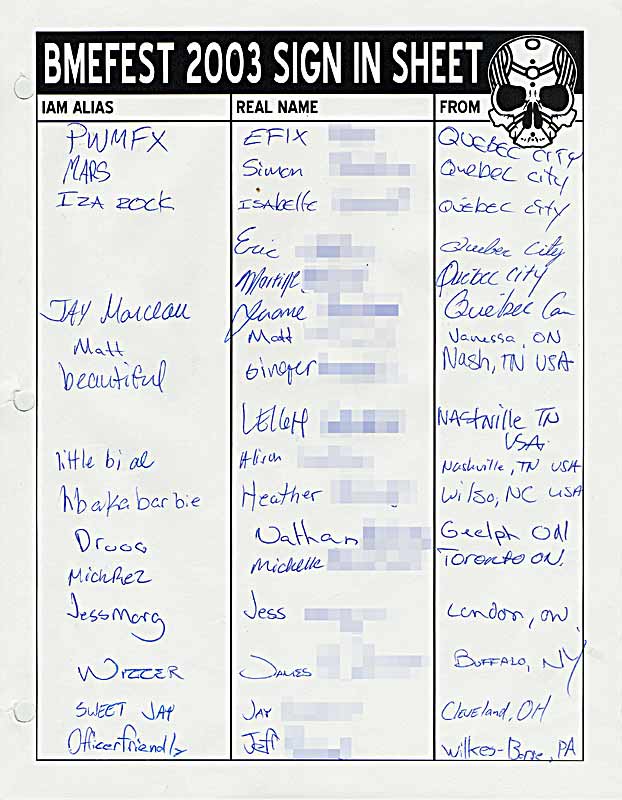 BMEFEST 2003 SIGN IN SHEET
IAM ALIAS REAL NAME FROM
PWMFX EFIX QUEBEC CITY
MARS Simon Quebec city
IZA ROCK ISABelle Québec city
Eric Quebec City
Martine Quebec city
JAY Marceau Jerome Québec Can
Matt Matt Vanessa, ON
beautiful Ginger Nash, TN USA
NAShville TN
USA.
little bi al Alison Nashville, TN USA
hbakabarbie Heather Wilso, NC USA
Nathan Guelph ON
MichRez Michelle TORONTO ON.
JessMarg Jess London, ON
WIZZER JAMES BUFFALO, NY
SWEET JAY JAY Cleveland, OH
Officerfriendly Jeff Wilkes-Barre, PA